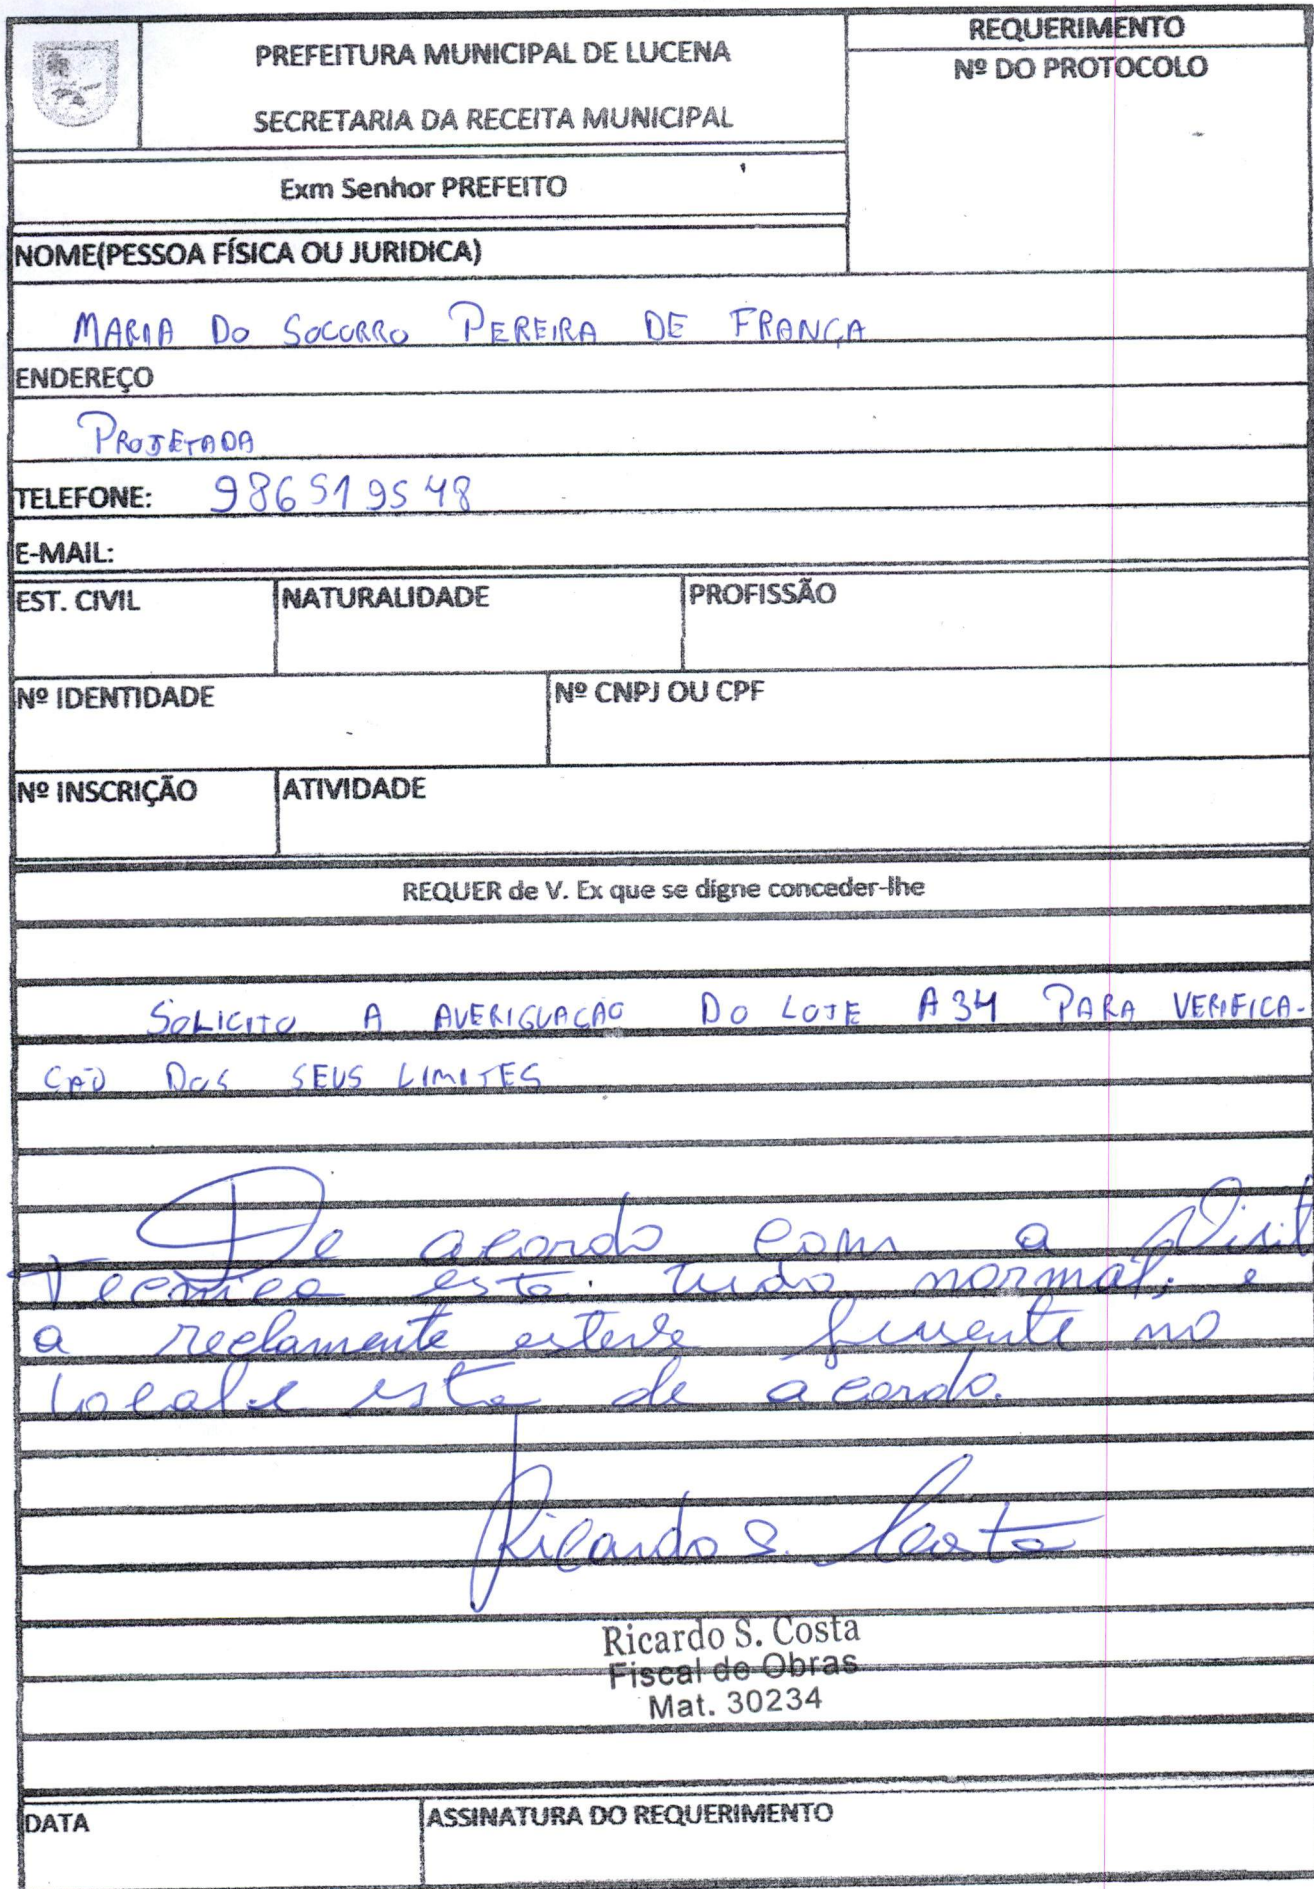 PREFEITURA MUNICIPAL DE LUCENA
SECRETARIA DA RECEITA MUNICIPAL
REQUERIMENTO
Nº DO PROTOCOLO
Exm Senhor PREFEITO
NOME(PESSOA FÍSICA OU JURIDICA)
MARIA DO SOCORRO PEREIRA DE FRANÇA
ENDEREÇO
PROJETADA
TELEFONE: 986519548
E-MAIL:
EST. CIVIL NATURALIDADE PROFISSÃO
Nº IDENTIDADE Nº CNPJ OU CPF
Nº INSCRIÇÃO ATIVIDADE
REQUER de V. Ex que se digne conceder-lhe
SOLICITO A AVERIGUAÇÃO DO LOTE A34 PARA VERIFICA-
ÇÃO DOS SEUS LIMITES
De acordo com a Visit
Tecnica esta tudo normal, e
a reclamente esteve presente no
local e esta de acordo.
Ricardo S. Costa
Ricardo S. Costa
Fiscal de Obras
Mat. 30234
DATA ASSINATURA DO REQUERIMENTO